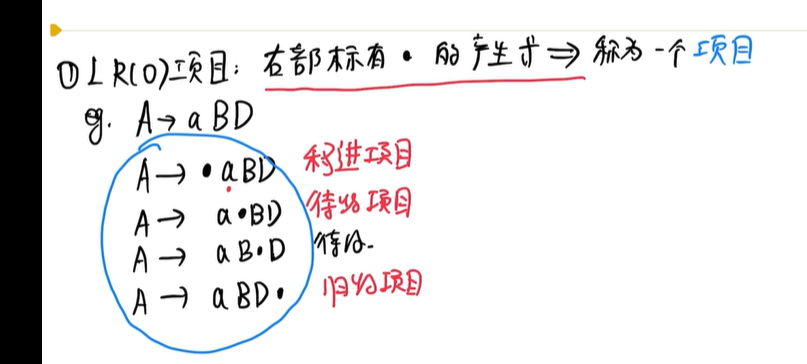 ① LR(0)项目：右部标有 • 的产生式 ⇒ 称为一个项目
eg. A→aBD
A→ •aBD 移进项目
A→ a•BD 待约项目
A→ aB•D 待约.
A→ aBD• 归约项目